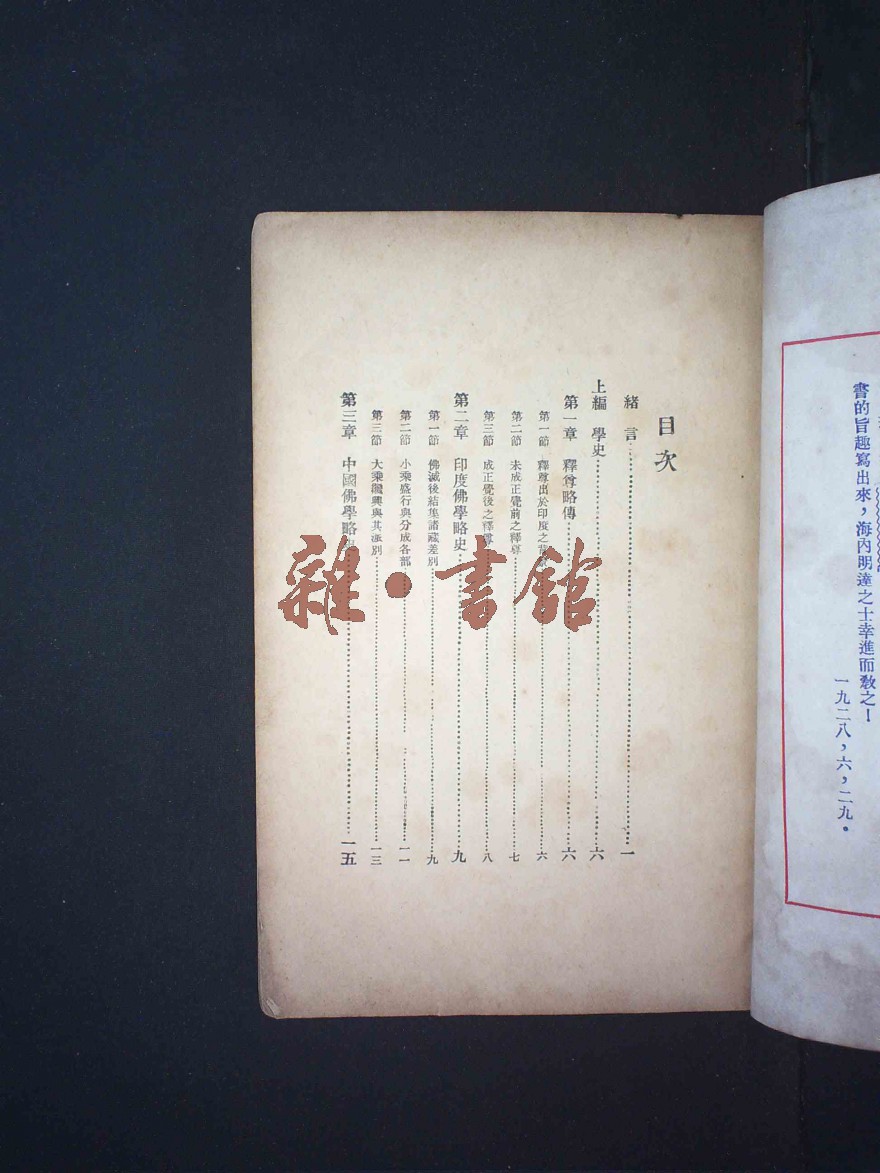 書的旨趣寫出來，海內明達之士幸進而教之！
一九二八，六，二九。
目次
緒言 一
上編 學史 六
第一章 釋尊略傳 六
第一節 釋尊出於印度之 六
第二節 未成正覺前之釋尊 七
第三節 成正覺後之釋尊 八
第二章 印度佛學略史 九
第一節 佛滅後結集諸藏差別 九
第二節 小乘盛行與分成各部 一一
第三節 大乘繼興與其派別 一三
第三章 中國佛學略史 一五
雜·書館